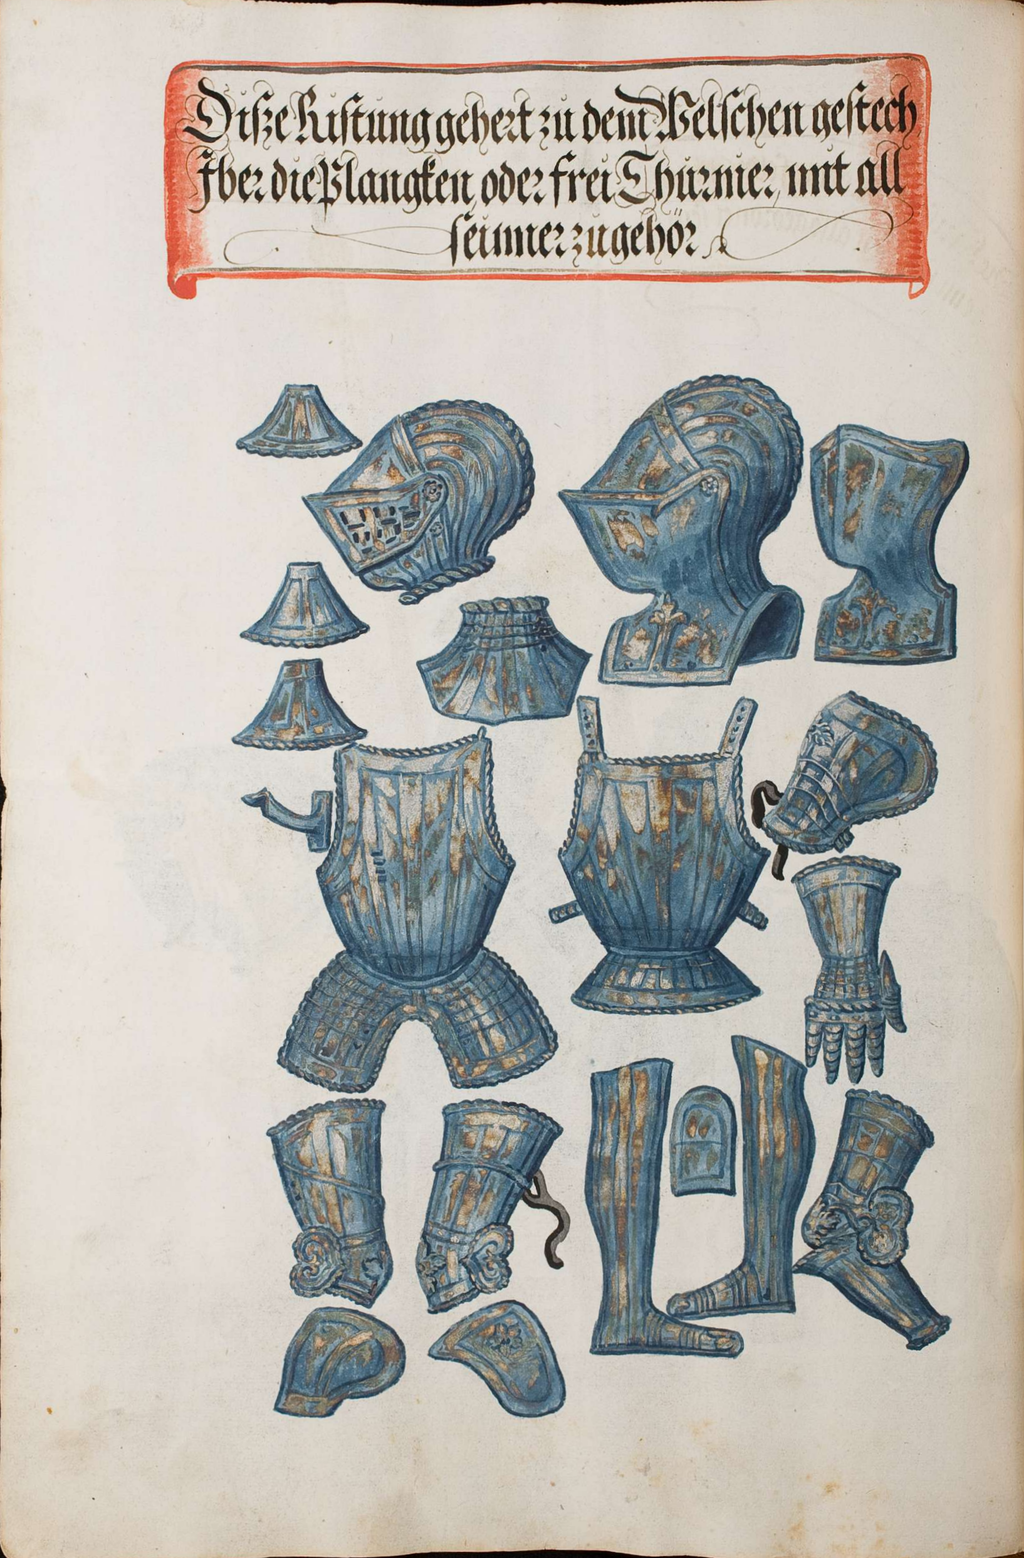 Disze Ristung gehert zu dem Welschen gestech
Iber die Plangken, oder frei Thurnier, mit all
seinner zugehör